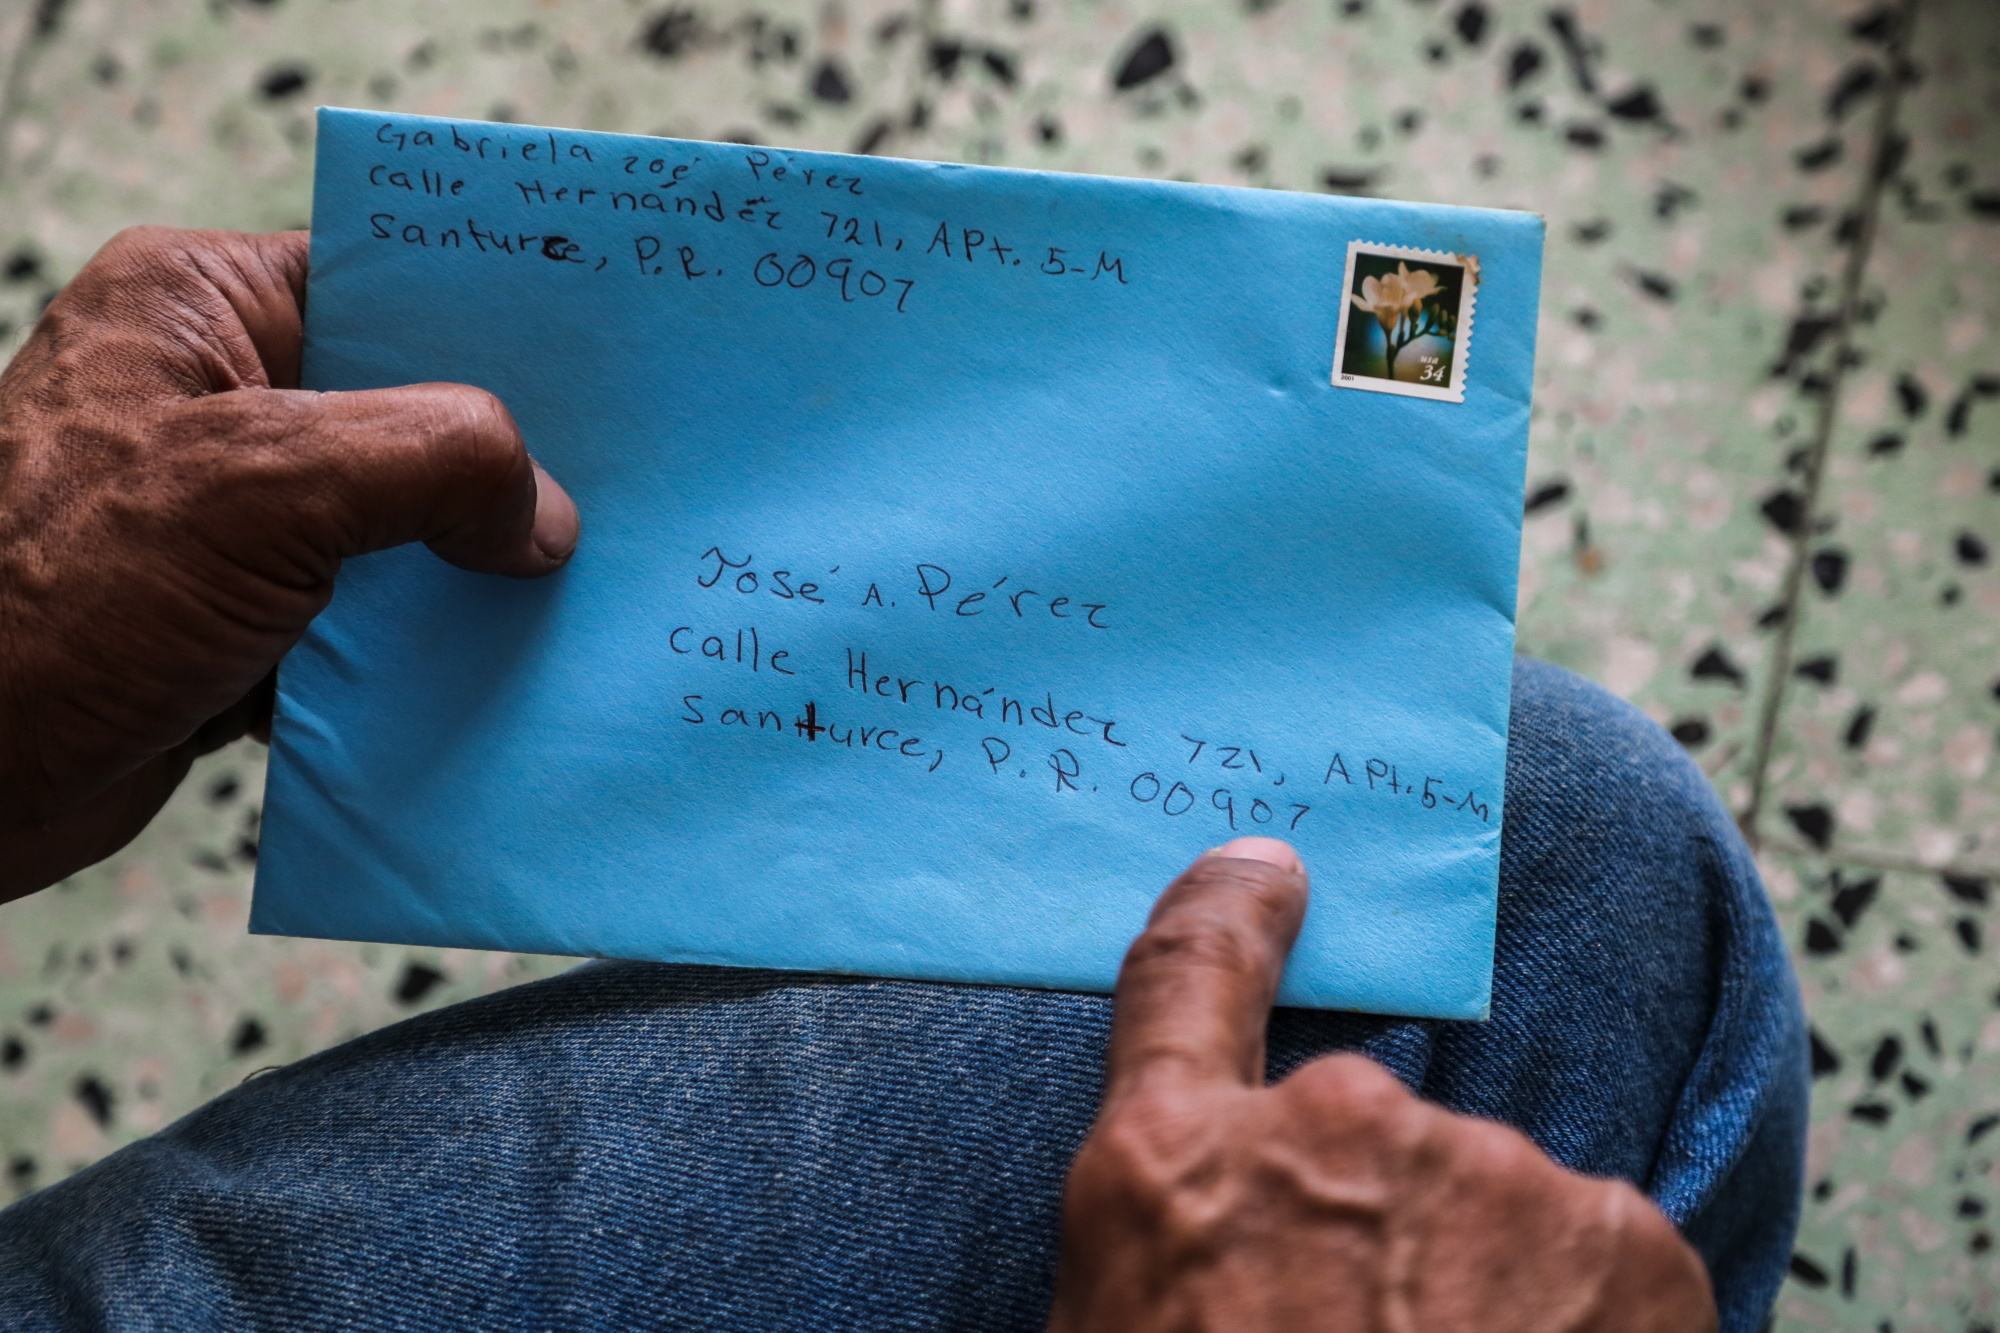 Gabriela Zoé Pérez
Calle Hernández 721, APt. 5-M
Santurce, P.R. 00907
usa
34
2001
José A. Pérez
Calle Hernández 721, APt. 5-M
Santurce, P.R. 00907